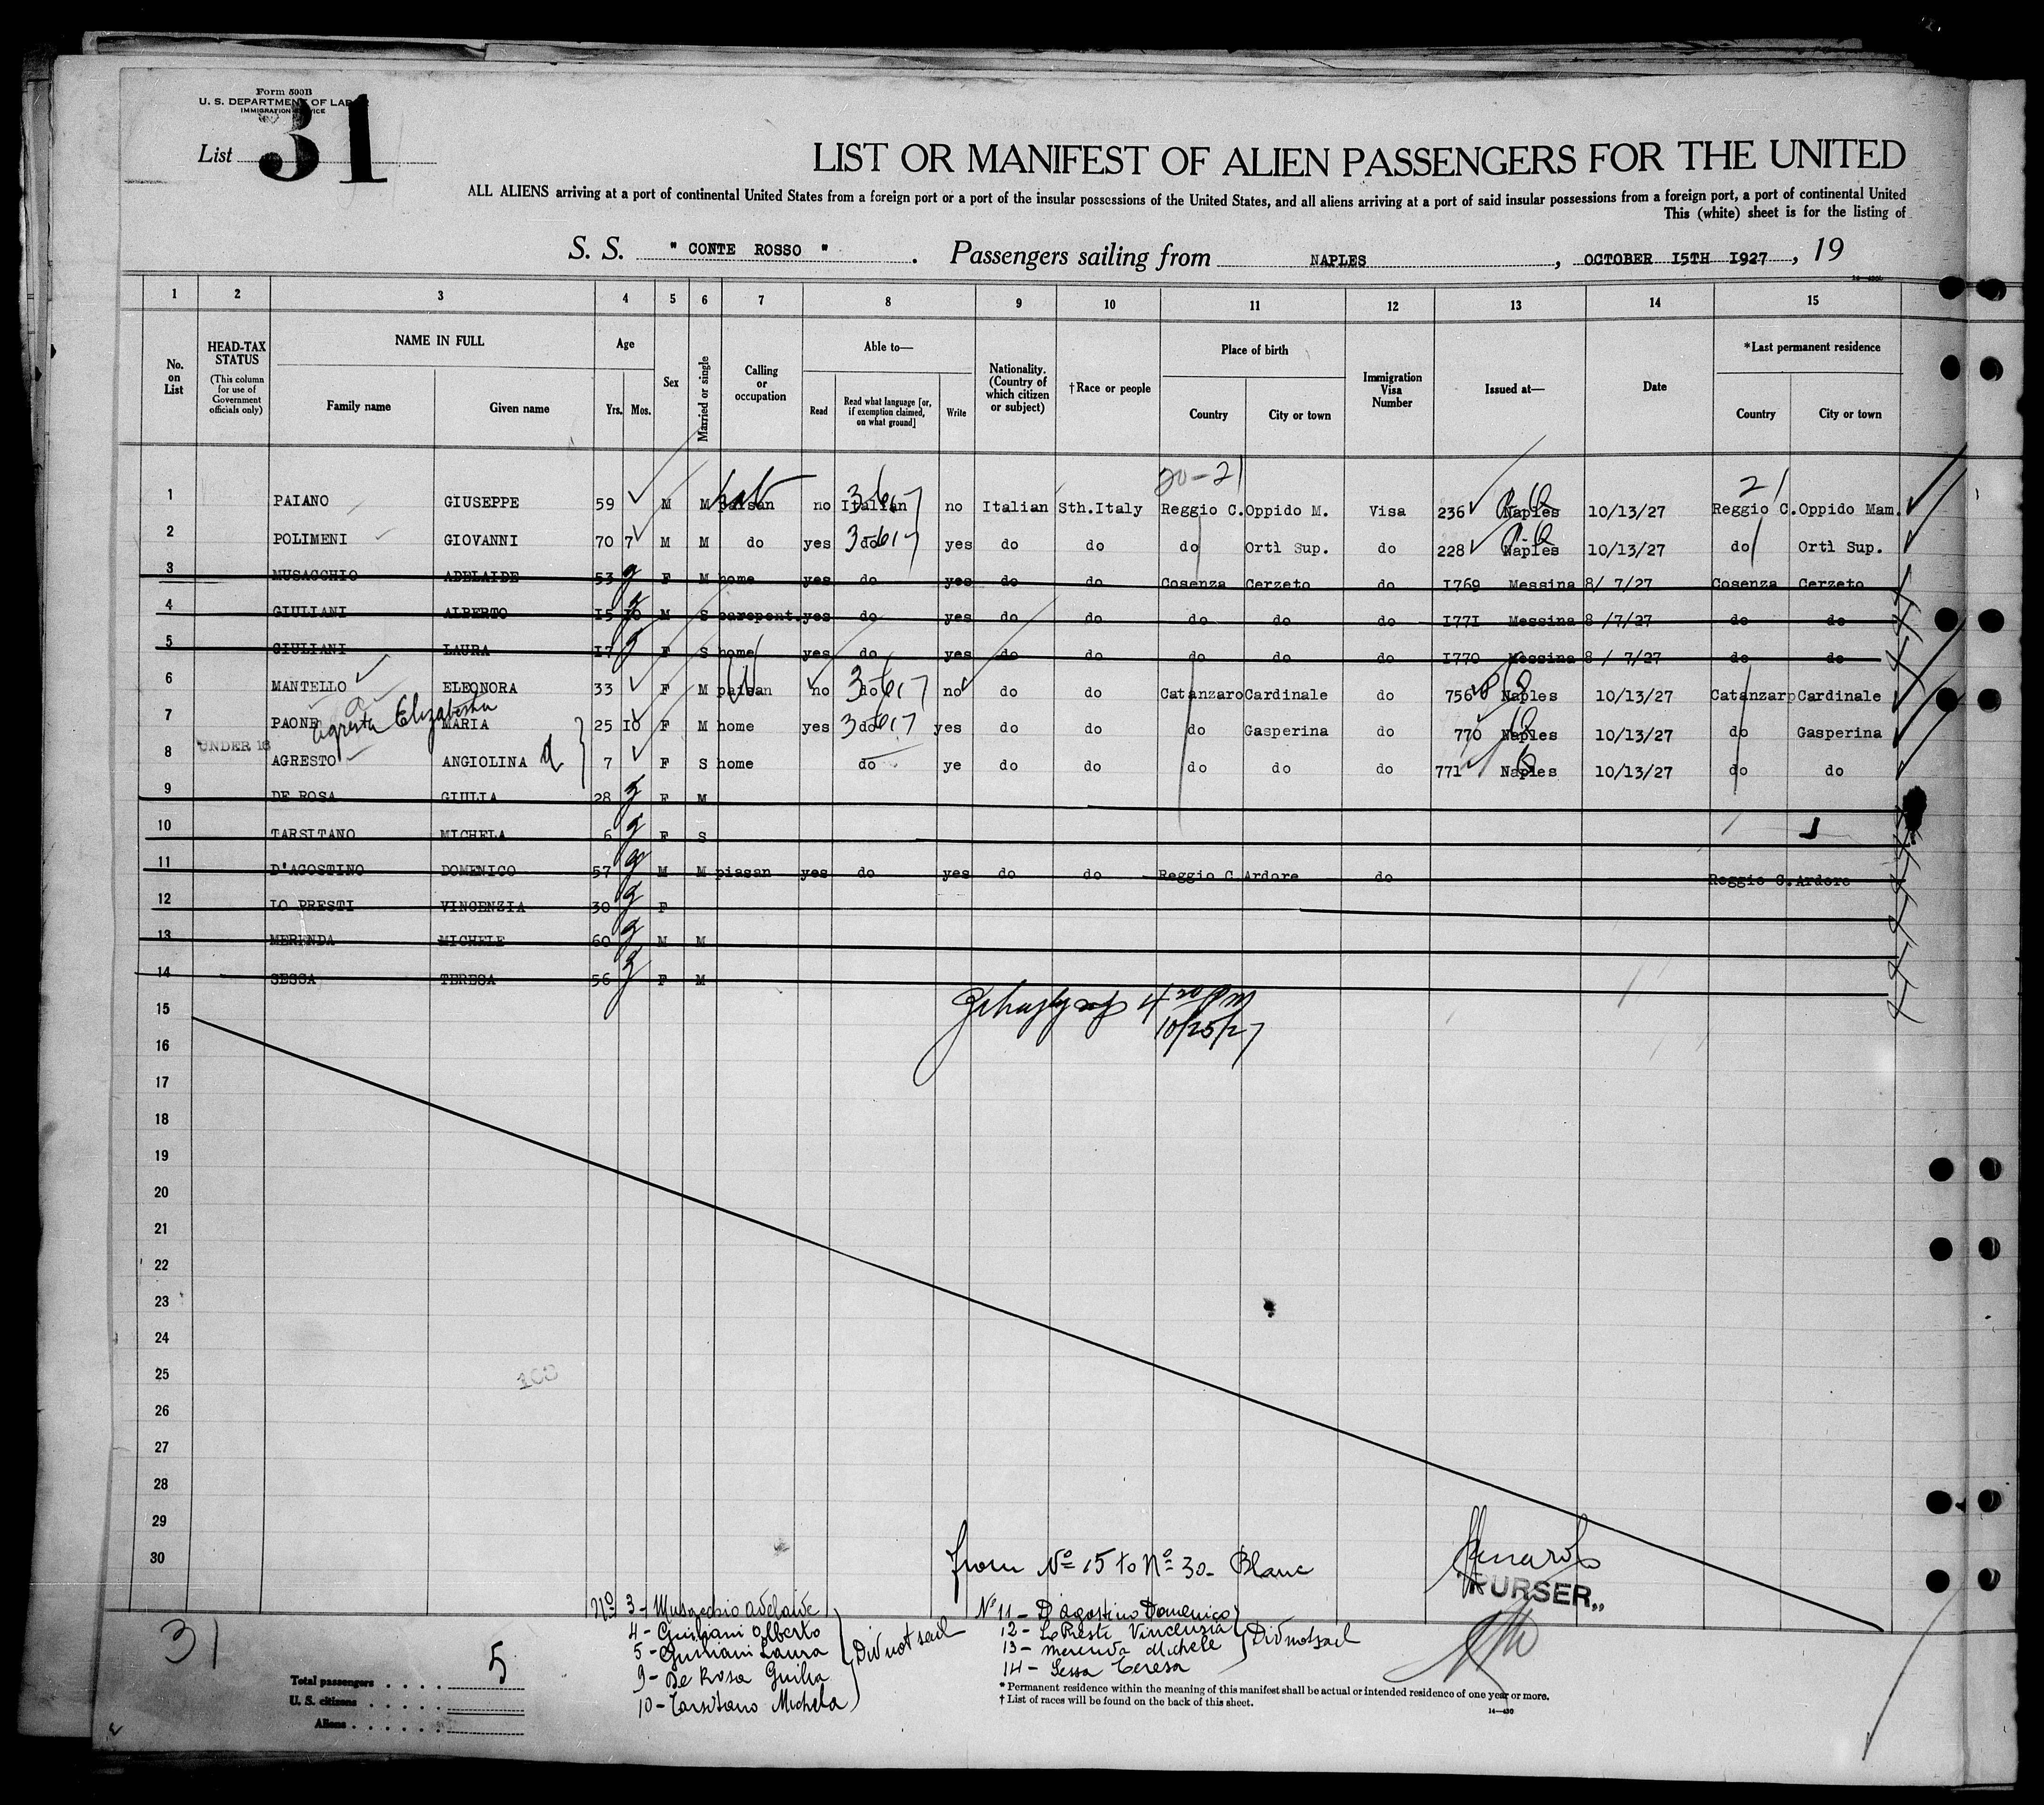 Form 500B
U. S. DEPARTMENT OF LABOR
IMMIGRATION SERVICE
List 31
LIST OR MANIFEST OF ALIEN PASSENGERS FOR THE UNITED
ALL ALIENS arriving at a port of continental United States from a foreign port or a port of the insular possessions of the United States, and all aliens arriving at a port of said insular possessions from a foreign port, a port of continental United
This (white) sheet is for the listing of
S. S. " CONTE ROSSO " . Passengers sailing from NAPLES , OCTOBER I5TH I927 , 19
14—430
1 2 3 4 5 6 7 8 9 10 11 12 13 14 15
No. on List HEAD-TAX STATUS (This column for use of Government officials only) NAME IN FULL Family name Given name Age Yrs. Mos. Sex Married or single Calling or occupation Able to— Read Read what language [or, if exemption claimed, on what ground] Write Nationality. (Country of which citizen or subject) †Race or people Place of birth Country City or town Immigration Visa Number Issued at— Date *Last permanent residence Country City or town
20-21 21
1 PAIANO GIUSEPPE 59 M M paisan no Italian 3617 no Italian Sth.Italy Reggio C. Oppido M. Visa 236 Naples 10/13/27 Reggio C. Oppido Mam.
2 POLIMENI GIOVANNI 70 7 M M do yes do 3617 yes do do do Ortì Sup. do 228 Naples 10/13/27 do Ortì Sup.
3 MUSACCHIO ADELAIDE 53 F M home yes do yes do do Cosenza Cerzeto do I769 Messina 8/ 7/27 Cosenza Cerzeto
4 GIULIANI ALBERTO I5 I0 M S carepent. yes do yes do do do do do I77I Messina 8 /7/27 do do
5 GIULIANI LAURA I7 F S home yes do yes do do do do do I770 Messina 8 / 7/27 do do
6 MANTELLO ELEONORA 33 F M paisan no do 3617 no do do Catanzaro Cardinale do 756 Naples 10/13/27 Catanzarp Cardinale
Agresta Elizabetha
7 PAONE MARIA 25 I0 F M home yes do 3617 yes do do do Gasperina do 770 Naples 10/13/27 do Gasperina
UNDER 16
8 AGRESTO ANGIOLINA 7 F S home do ye do do do do do 771 Naples 10/13/27 do do
9 DE ROSA GIULIA 28 F M
10 TARSITANO MICHELA 6 F S
11 D'AGOSTINO DOMENICO 57 M M piasan yes do yes do do Reggio C. Ardore do Reggio C. Ardore
12 LO PRESTI VINCENZIA 30 F
13 MERENDA MICHELE 60 M M
14 SESSA TERESA 56 F M
15 4 30 PM
16 10/25/27
17
18
19
20
21
22
23
24
25
100
26
27
28
29
30 from Nº 15 to Nº 30- Blanc
PURSER„
Nº 3- Musacchio Adelaide
4- Giuliani Alberto
5- Giuliani Laura
9- De Rosa Guilia
10- Tarsitano Michela
Did not sail
Nº 11- D'Agostino Domenico
12- Lo Presti Vincenzia
13- Merenda Michele
14- Sessa Teresa
Did not sail
31
Total passengers . . . . 5
U. S. citizens . . . . .
Aliens . . . . . .
* Permanent residence within the meaning of this manifest shall be actual or intended residence of one year or more.
† List of races will be found on the back of this sheet.
14—430